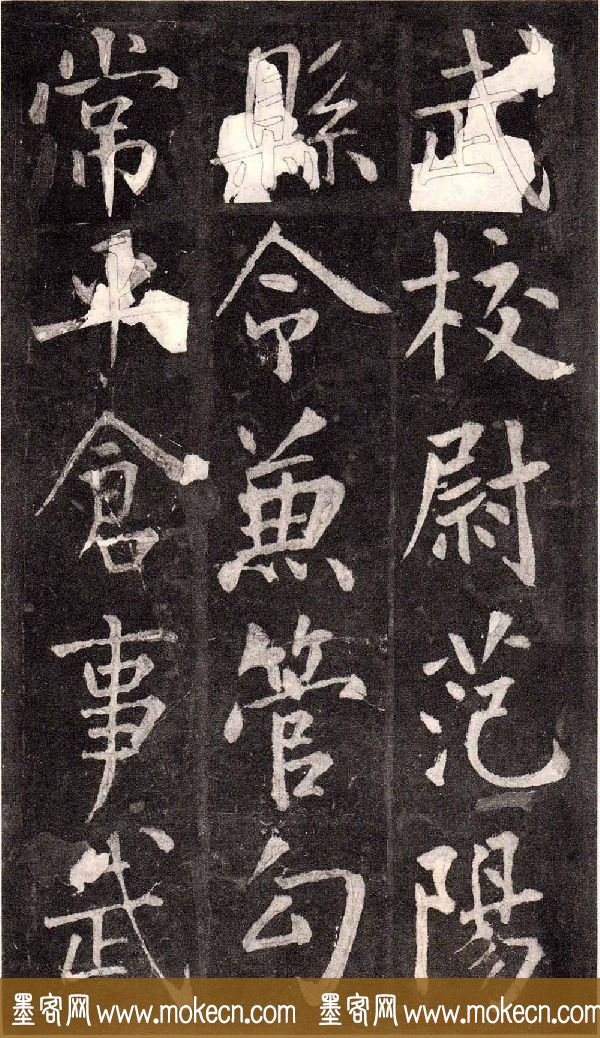 武校尉范陽
縣令兼管勾
常平倉事武
墨客网 www.mokecn.com 墨客网 www.mokecn.com